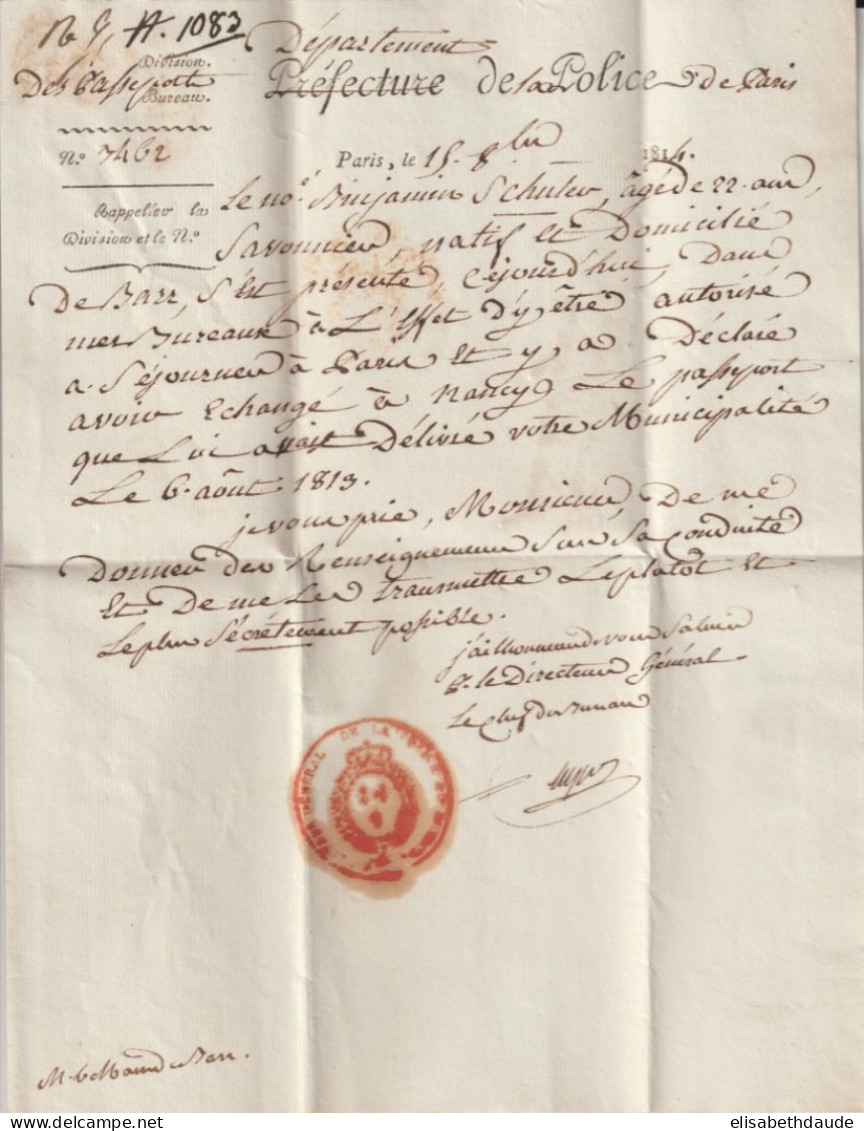 N.º 9, A. 1083
Division.
Des Passeports
Bureau.
N.º 7462
Rappeller la
Division et le N.º
Département
Préfecture de la Police de Paris
Paris, le 15. 8bre 1814.
Le né. Binjamin Schuler, âgé de 22. ans,
Savonnier, natif Et Domicilié
De Barr, S'Est présenté, Cejourd'hui, Dans
mes Bureaux à L'Effet D'y être autorisé
a Séjourner à Paris Et y a Déclaré
avoir Echangé à Nancy Le passeport
que Lui avait Délivré votre Municipalité
Le 6. août 1813.
je vous prie, Monsieur, De me
Donner des Renseignemens Sur Sa Conduite
Et De me Les transmettre Leplutôt Et
Leplus Sécrétement possible.
j'ai l'honneur de vous Saluer
Pr. le Directeur Général
Le Chef du Bureau
GÉNÉRAL DE LA
M. le Maire de Barr.
elisabethdaude